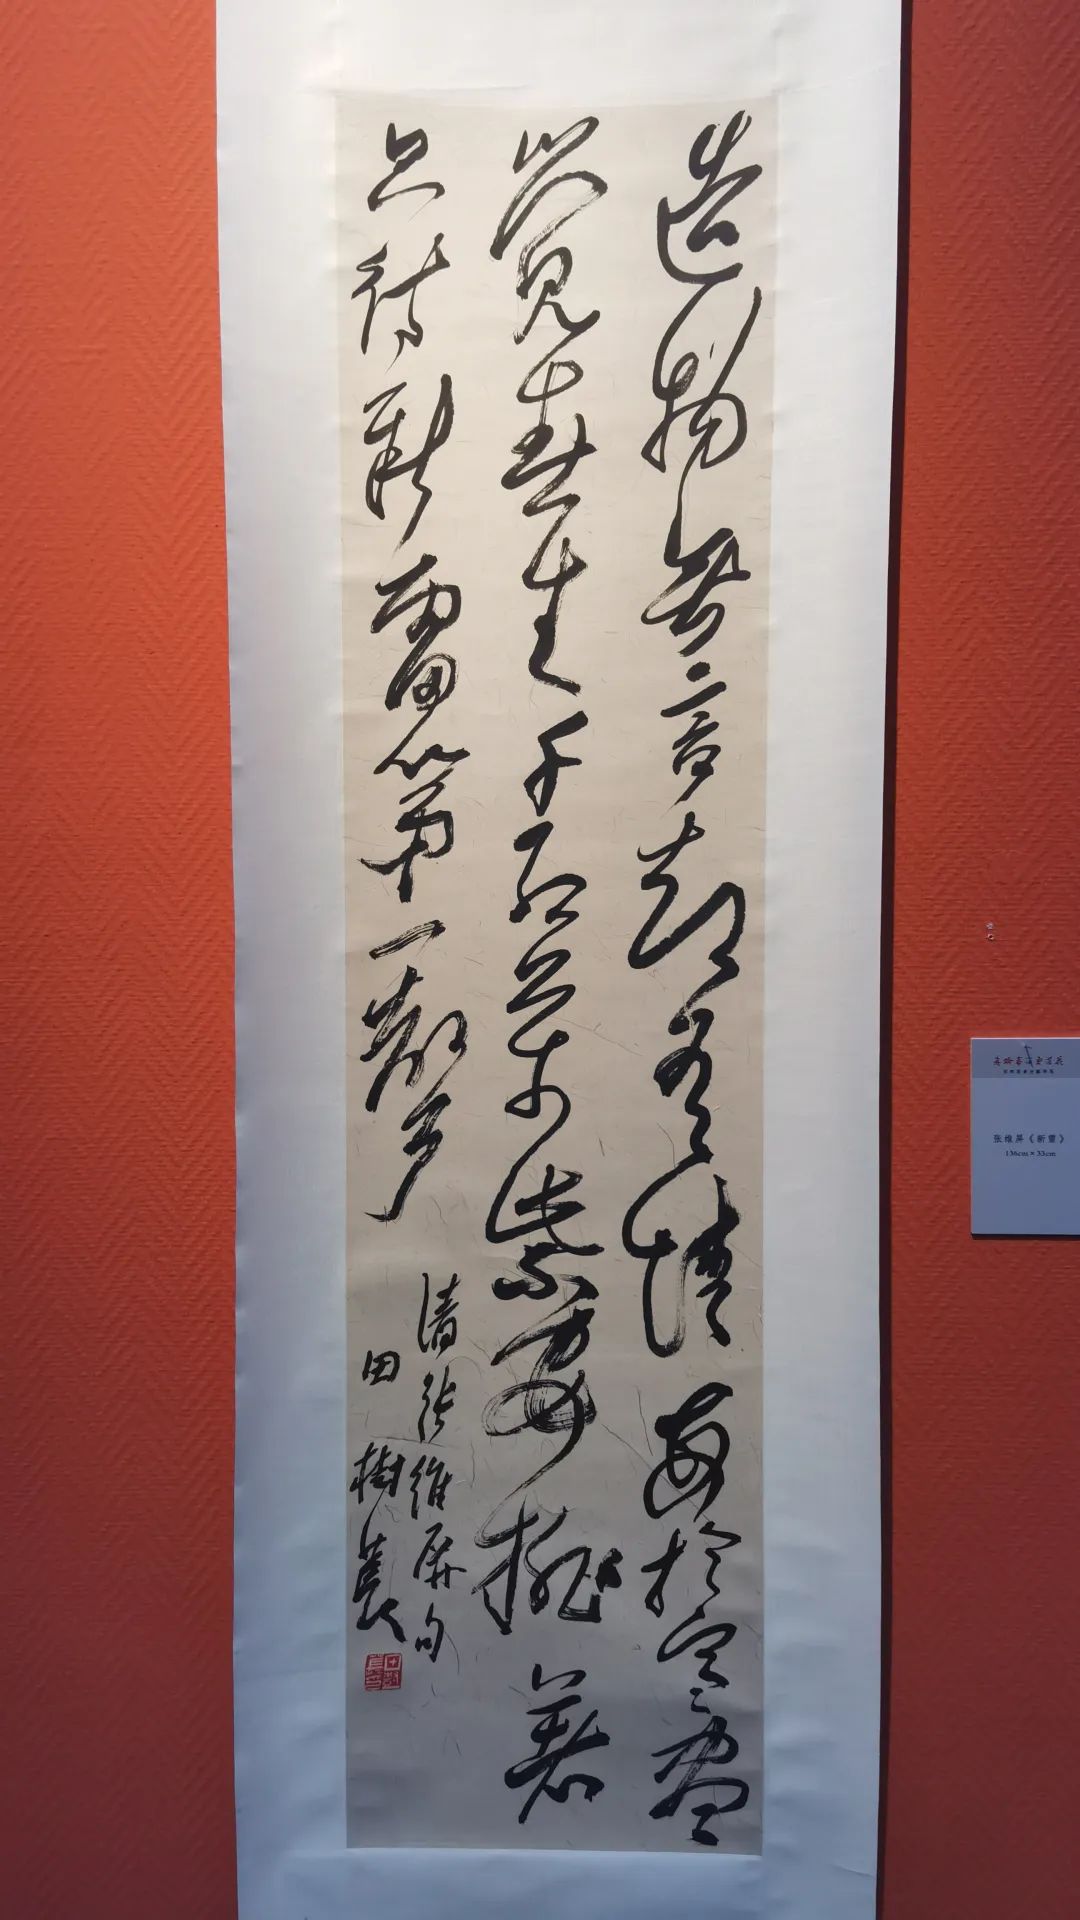 造物無言却有情每於寒盡
覺春生千紅萬紫安排著
只待新雷第一聲
清張維屏句
田樹萇
张维屏《新雷》
136cm×33cm